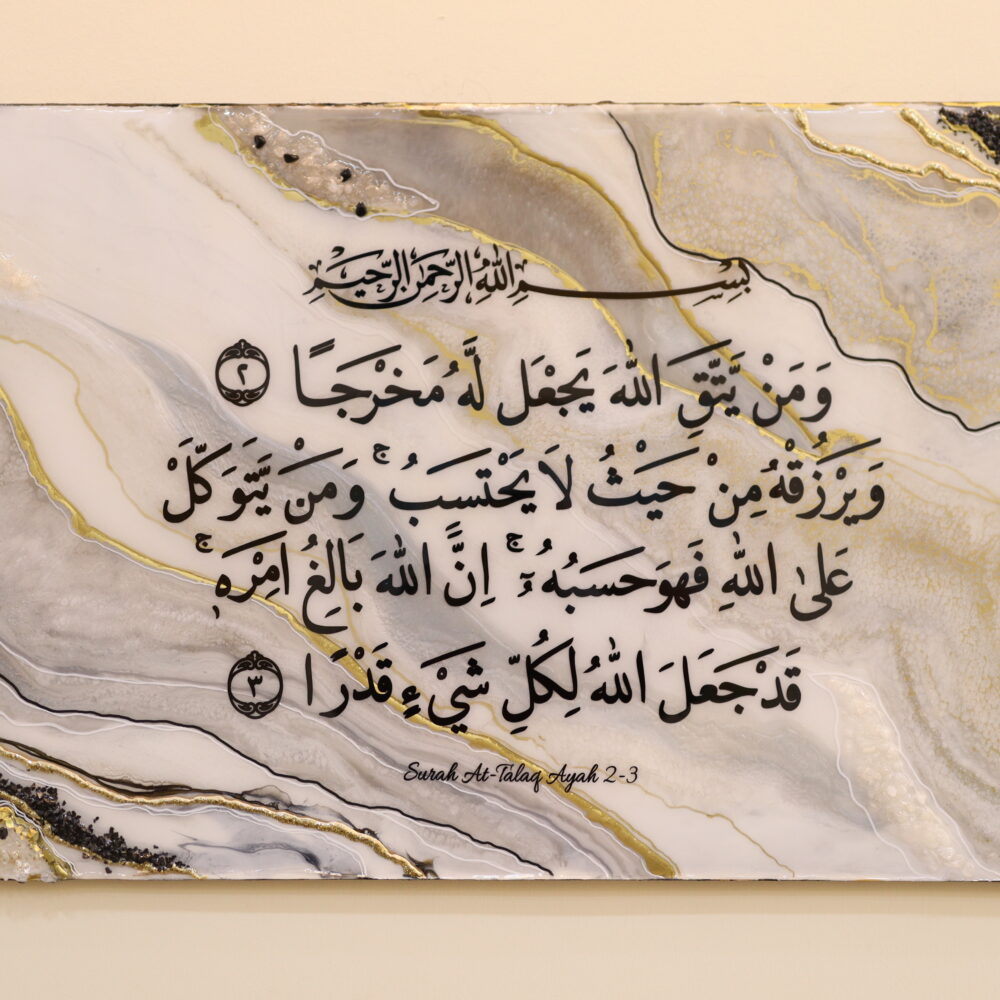 بِسْمِ اللهِ الرَّحْمٰنِ الرَّحِيْمِ
وَمَنْ يَّتَّقِ اللهَ يَجْعَل لَّهُ مَخْرَجًا ٢
وَيَرْزُقْهُ مِنْ حَيْثُ لَا يَحْتَسَبُ ۚ وَمَنْ يَّتَوَكَّلْ
عَلىٰ اللهِ فَهوَ حَسَبُهُ ۚ اِنَّ اللهَ بَالِغُ اَمْرِهٖ ۚ
قَدْ جَعَلَ اللهُ لِكُلِّ شَيْءٍ قَدْرًا ٣
Surah At-Talaq Ayah 2-3